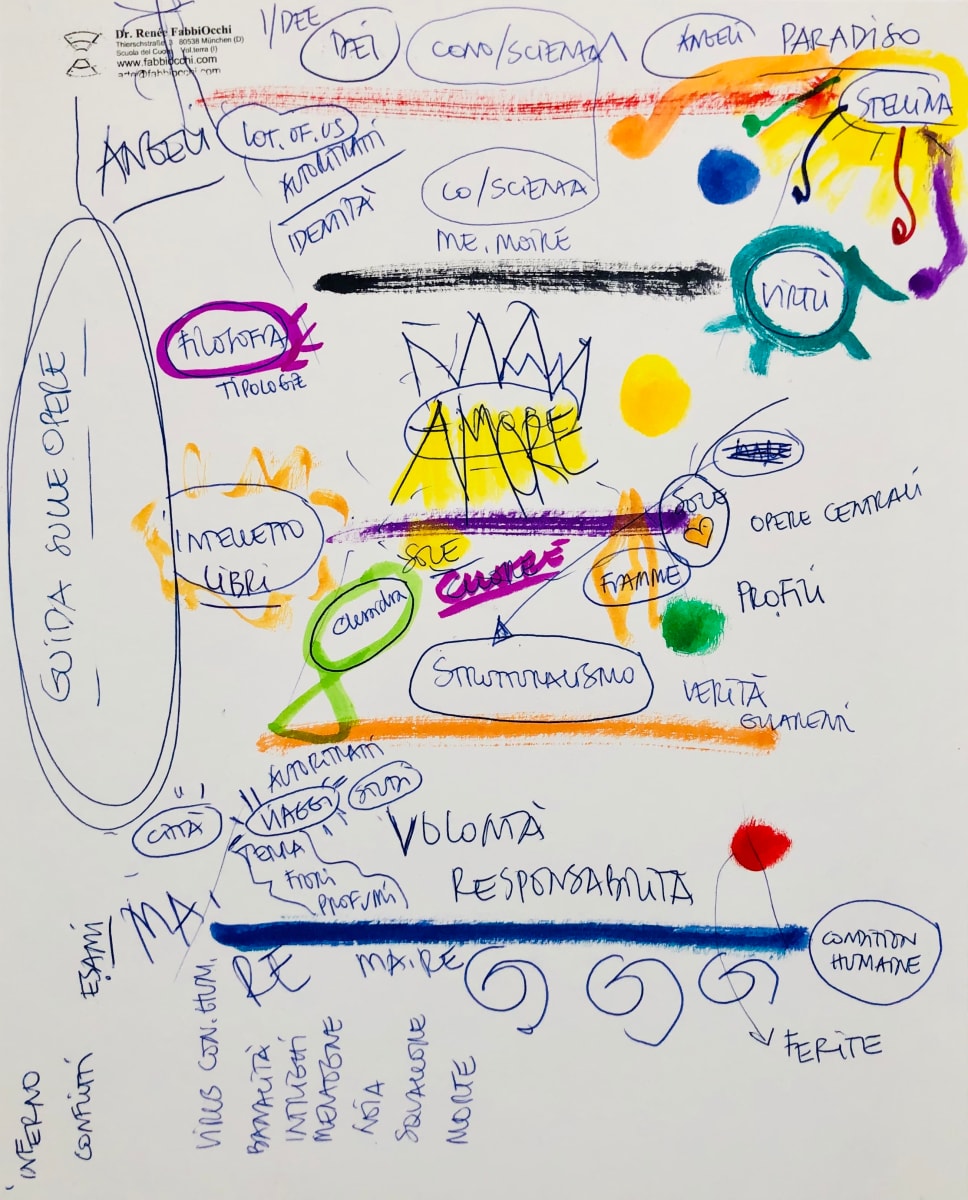 Dr. Renée FabbiOcchi
Thierschstraße 3 80538 München (D)
Scuola del Cuore Volterra (I)
www.fabbiocchi.com
arte@fabbiocchi.com
I/DEE
DEI
CONO/SCIENZA
ANGELI
PARADISO
STELLINA
ANGELI
LOT. OF. US
AUTORITRATTI
IDENTITÀ
CO/SCIENZA
ME. MOIRE
VIRTÙ
FILOSOFIA
TIPOLOGIE
AMORE
GUIDA SULLE OPERE
INTELLETTO
LIBRI
SOLE
CUORE
SOLE
OPERE CENTRALI
FIAMME
PROFILI
Clessidra
STRUTTURALISMO
VERITÀ
AUTORITRATTI
VIAGGI
STUDI
CITTÀ
TERRA
FIORI
PROFUMI
VOLONTÀ
RESPONSABILITÀ
MA.
ESAMI
RE
MA.RE
CONDITION
HUMAINE
FERITE
INFERNO
CONFLITTI
VIRUS CON. HUM.
BANALITÀ
INTRIGHI
MENZOGNE
NOIA
SQUALLORE
MORTE